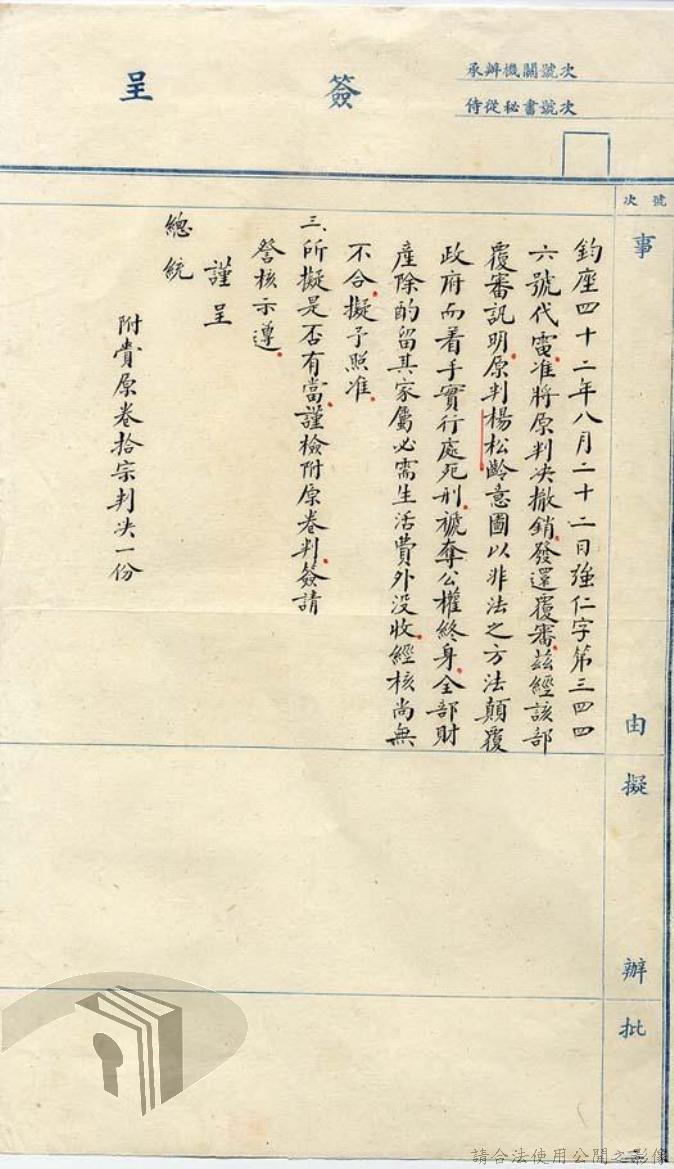 簽呈
承辦機關號次
侍從秘書號次
號次
事由
擬辦
批
鈞座四十二年八月二十二日強仁字第三四四
六號代電准將原判決撤銷發還覆審茲經該部
覆審訊明原判楊松齡意圖以非法之方法顛覆
政府而着手實行處死刑褫奪公權終身全部財
產除酌留其家屬必需生活費外沒收經核尚無
不合擬予照准
三、所擬是否有當謹檢附原卷判簽請
詧核示遵
謹呈
總統
附賫原卷拾宗判決一份
請合法使用公開之影像